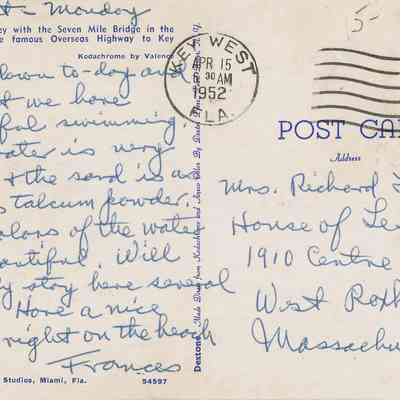 t - Monday
ey with the Seven Mile Bridge in the
e famous Overseas Highway to Key
Kodachrome by Valenc
down to-day and
t we have
ful swimming.
ater is very
& the sand is as
s talcum powder.
olors of the water
eautiful. Will
y stay here several
Have a nice
right on the beach
Frances
Studios, Miami, Fla. 54597
Dextone Made Direct from Kodachrome and Ansco Color By Dexter Press,
KEY WEST
APR 15
6 30 AM
1952
FLA.
5-
POST CA
Address
Mrs. Richard
House of
1910 Centre
West Rox
Massachu